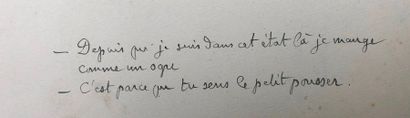 — Depuis que je suis dans cet état là je mange
comme un ogre
— C'est parce que tu sens le petit pousser.